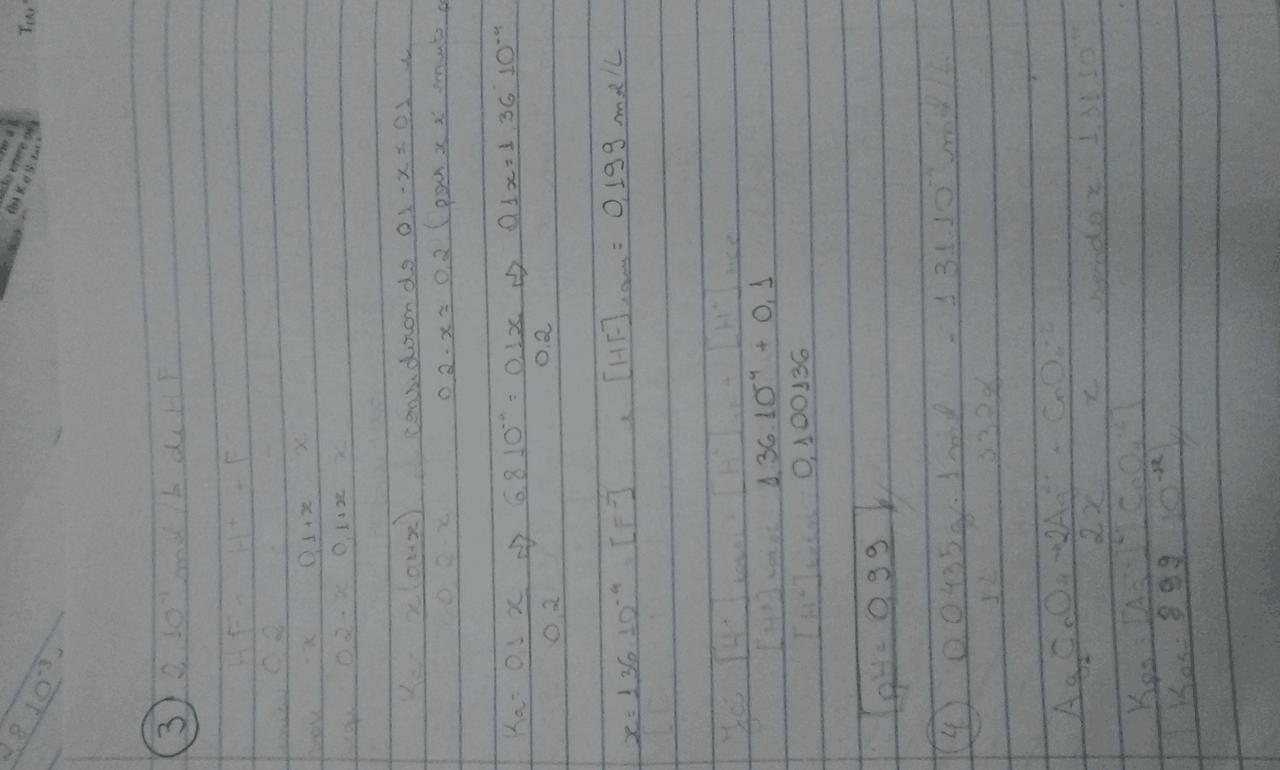 2,8 10⁻³
③ 2 10⁻¹ mol/L de HF
HF ⇌ H⁺ + F⁻
0,2 - -
-x 0,1+x x
0,2-x 0,1+x x
Ka = x(0,1+x) considerando 0,1-x = 0,1 e
0,2-x 0,2-x = 0,2 (pois x é muito
Ka = 0,1 x ⇒ 6,8 10⁻⁴ = 0,1x ⇒ 0,1x = 1,36 10⁻⁴
0,2 0,2
x = 1,36 10⁻⁴ = [F⁻] e [HF] = 0,199 mol/L
[H⁺] = [H⁺] + [H⁺] HCl
[H⁺] = 1,36.10⁻⁴ + 0,1
[H⁺] 0,100136
pH = 0,99
④ 0,0435 g . 1 mol = 1,31.10⁻⁴ mol/L
1L 332g
Ag₂CrO₄ → 2Ag⁺ + CrO₄⁻²
2x x sendo x 1,31 10⁻⁴
Kps = [Ag⁺]² [CrO₄⁻²]
Kps = 8,99 10⁻¹²